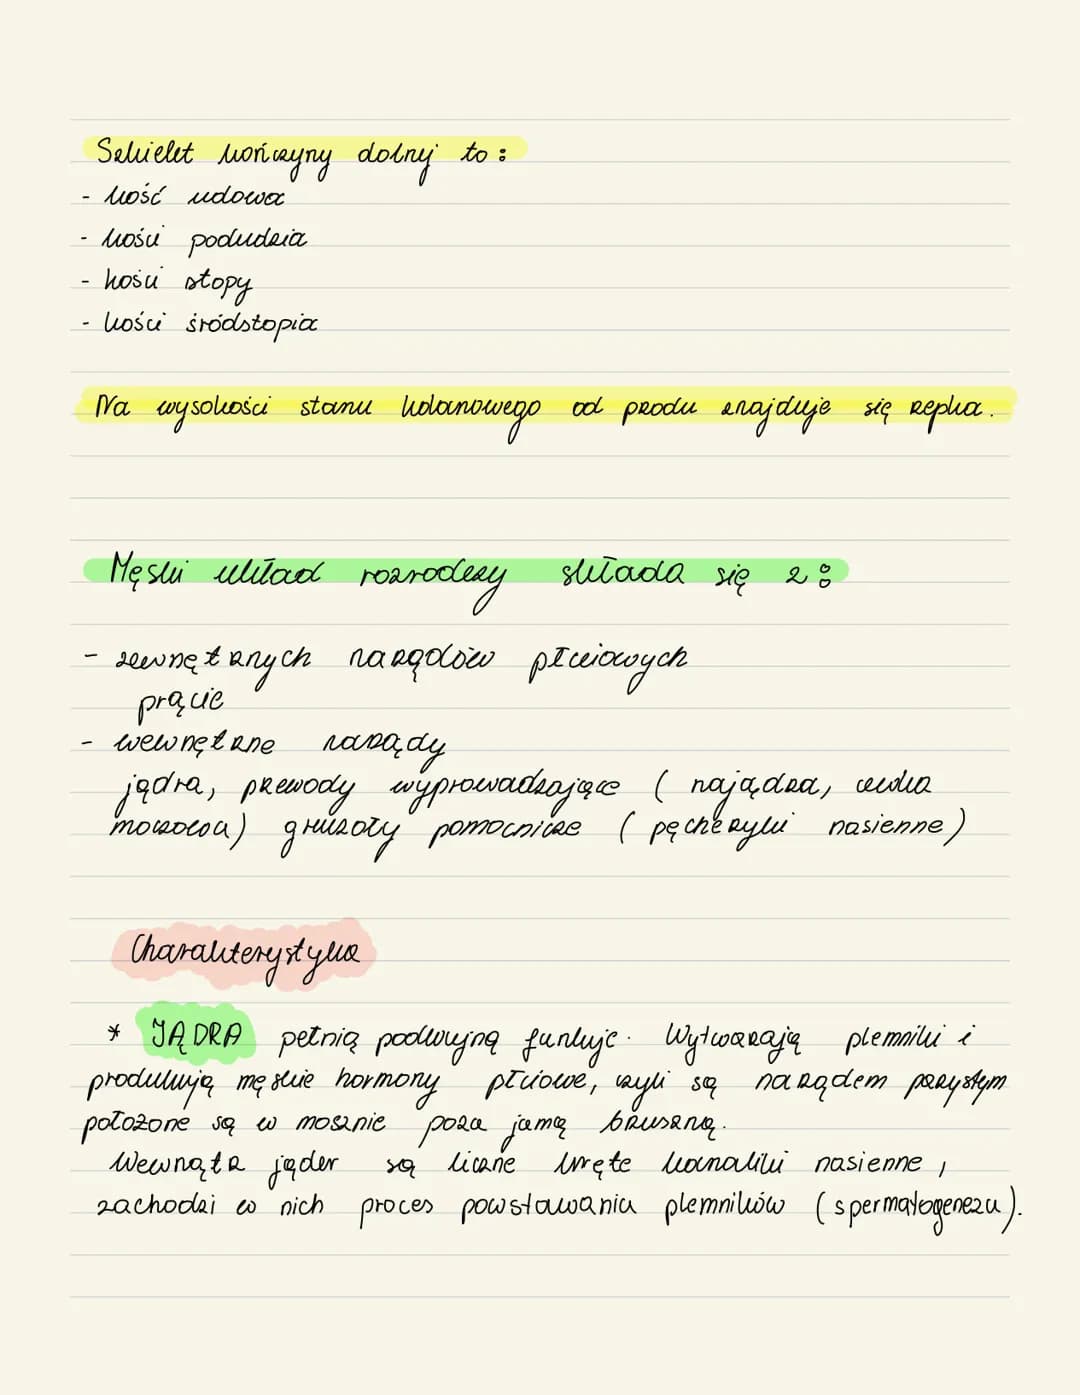 Szkielet kończyny dolnej to:
- kość udowa
- kości podudzia
- kości stopy
- kości śródstopia
Na wysokości stanu kolanowego od przodu znajduje się rzepka.
Męski układ rozrodczy składa się z:
- zewnętrznych narządów płciowych
prącie
- wewnętrzne narządy
jądra, przewody wyprowadzające ( najądrza, cewka
moczowa) gruczoły pomocnicze ( pęcherzyki nasienne)
Charakterystyka
* JĄDRA pełnią podwójną funkcje. Wytwarzają plemniki i
produkują męskie hormony płciowe, czyli są narządem parzystym
położone są w mosznie poza jamą brzuszną.
Wewnątrz jąder są liczne kręte kanaliki nasienne,
zachodzi w nich proces powstawania plemników (spermatogeneza).